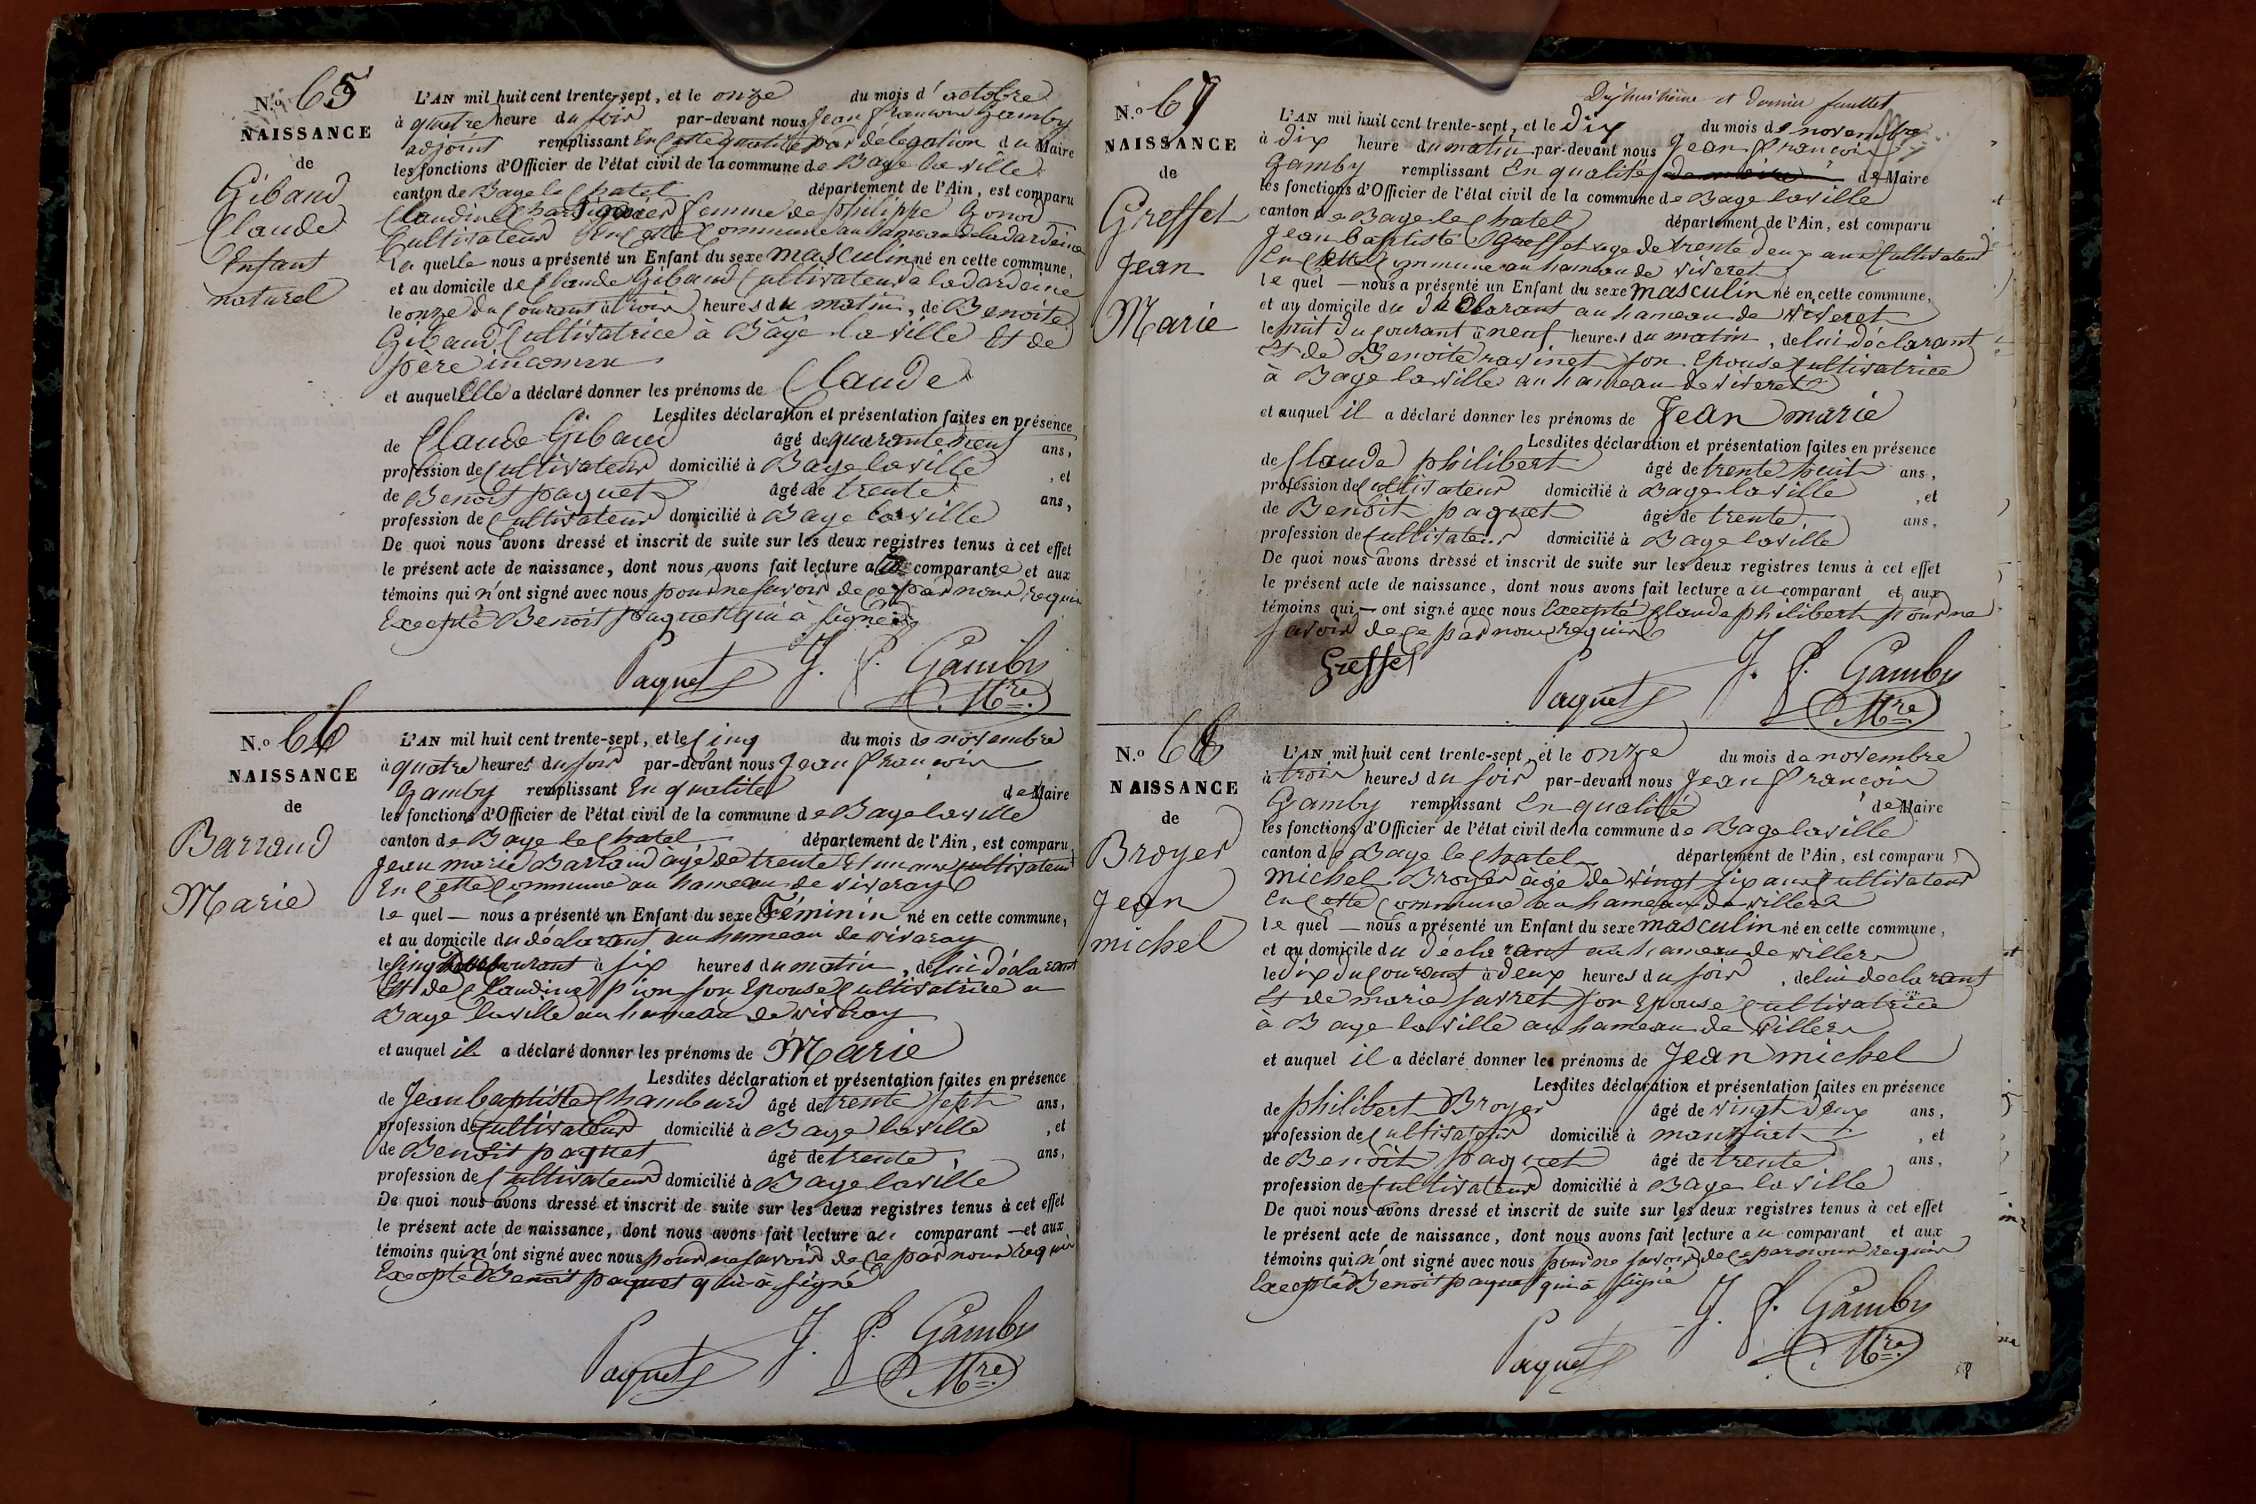 N.o 65
NAISSANCE
de
Giband
Claude
Enfant
naturel
L'AN mil huit cent trente-sept, et le onze du mois d'octobre
à quatre heure du soir par-devant nous Jean françois Gamby
adjoint remplissant En cette qualité par délégation du Maire
les fonctions d'Officier de l'état civil de la commune de Bage la ville
canton de Bage le Chatel département de l'Ain, est comparu
Claudine femme de philippe Gonod
Cultivateur En cette Commune au hameau de la dardaine
la quelle nous a présenté un Enfant du sexe masculin né en cette commune,
et au domicile de Claude Giband Cultivateur à la dardaine
le onze du Courant à trois heures du matin, de Benoite
Giband Cultivatrice à Bâgé la ville Et de
père inconnu
et auquel Elle a déclaré donner les prénoms de Claude
Lesdites déclaration et présentation faites en présence
de Claude Giband âgé de quarante neuf ans,
profession de Cultivateur domicilié à Baye la ville , et
de Benoit paquet âgé de trente ans,
profession de Cultivateur domicilié à Baye la ville
De quoi nous avons dressé et inscrit de suite sur les deux registres tenus à cet effet
le présent acte de naissance, dont nous avons fait lecture a la comparante et aux
témoins qui n'ont signé avec nous pour ne savoir de ce par nous requis
Excepté Benoit paquet qui à signé
Paquet J. f. Gamby
Mre
N.o 66
NAISSANCE
de
Barraud
Marie
L'AN mil huit cent trente-sept, et le Cinq du mois de novembre
à quatre heures du soir par-devant nous Jean françois
Gamby remplissant En qualité de Maire
les fonctions d'Officier de l'état civil de la commune de Bage la ville
canton de Baye le Chatel département de l'Ain, est comparu
Jean marie Barraud agé de trente Et un ans Cultivateur
En Cette Commune au hameau de viveray
le quel — nous a présenté un Enfant du sexe Féminin né en cette commune,
et au domicile du déclarant au hameau de viveray
le Cinq du Courant à six heures du matin, de lui déclarant
Et de Claudine pion son Epouse Cultivatrice a
Bage la ville au hameau de viveray
et auquel il a déclaré donner les prénoms de Marie
Lesdites déclaration et présentation faites en présence
de Jean baptiste Chambard âgé de trente sept ans,
profession de Cultivateur domicilié à Baye la ville , et
de Benoit paquet âgé de trente, ans,
profession de Cultivateur domicilié à Baye la ville
De quoi nous avons dressé et inscrit de suite sur les deux registres tenus à cet effet
le présent acte de naissance, dont nous avons fait lecture au comparant — et aux
témoins qui n'ont signé avec nous pour ne savoir de Ce par nous requis
Excepté Benoit paquet qui à signé
Paquet J. f. Gamby
Mre
Dixhuitième et dernier feuillet
N.o 67
NAISSANCE
de
Greffet
Jean
Marie
L'AN mil huit cent trente-sept, et le dix du mois de novembre
à dix heure du matin par-devant nous Jean françois
Gamby remplissant En qualité de Maire
les fonctions d'Officier de l'état civil de la commune de Bage la ville
canton de Baye le Chatel département de l'Ain, est comparu
Jean baptiste Greffet age de trente deux ans Cultivateur
En Cette Commune au hameau de viveret
le quel — nous a présenté un Enfant du sexe masculin né en cette commune,
et au domicile du déclarant au hameau de viveret
le huit du courant à neuf heures du matin, de lui déclarant
Et de Benoite ravinet son Epouse Cultivatrice
à Bage la ville au hameau de viveret
et auquel il a déclaré donner les prénoms de Jean marie
Lesdites déclaration et présentation faites en présence
de Claude philibert âgé de trente huit ans,
profession de Cultivateur domicilié à Bage la ville , et
de Benoit paquet âgé de trente ans,
profession de Cultivateur domicilié à Baye la ville
De quoi nous avons dressé et inscrit de suite sur les deux registres tenus à cet effet
le présent acte de naissance, dont nous avons fait lecture au comparant et aux
témoins qui — ont signé avec nous Excepté Claude philibert pour ne
savoir de Ce par nous requis
Greffet
Paquet J. f. Gamby
Mre
N.o 68
NAISSANCE
de
Broyer
Jean
michel
L'AN mil huit cent trente-sept, et le onze du mois de novembre
à trois heures du soir par-devant nous Jean françois
Gamby remplissant En qualité de Maire
les fonctions d'Officier de l'état civil de la commune de Bage la ville
canton de Baye le Chatel département de l'Ain, est comparu
michel Broyer âgé de vingt six ans Cultivateur
En Cette Commune au hameau de villers
le quel — nous a présenté un Enfant du sexe masculin né en cette commune,
et au domicile du déclarant au hameau de villers
le dix du Courant à deux heures du soir, de lui declarant
Et de marie favret son Epouse Cultivatrice
à Baye la ville au hameau de villers
et auquel il a déclaré donner les prénoms de Jean michel
Lesdites déclaration et présentation faites en présence
de philibert Broyer âgé de vingt deux ans,
profession de Cultivateur domicilié à manziat , et
de Benoit paquet âgé de trente ans,
profession de Cultivateur domicilié à Baye la ville
De quoi nous avons dressé et inscrit de suite sur les deux registres tenus à cet effet
le présent acte de naissance, dont nous avons fait lecture au comparant et aux
témoins qui n'ont signé avec nous pour ne savoir de Ce par nous requis
Excepté Benoit paquet qui à signé
Paquet J. f. Gamby
Mre